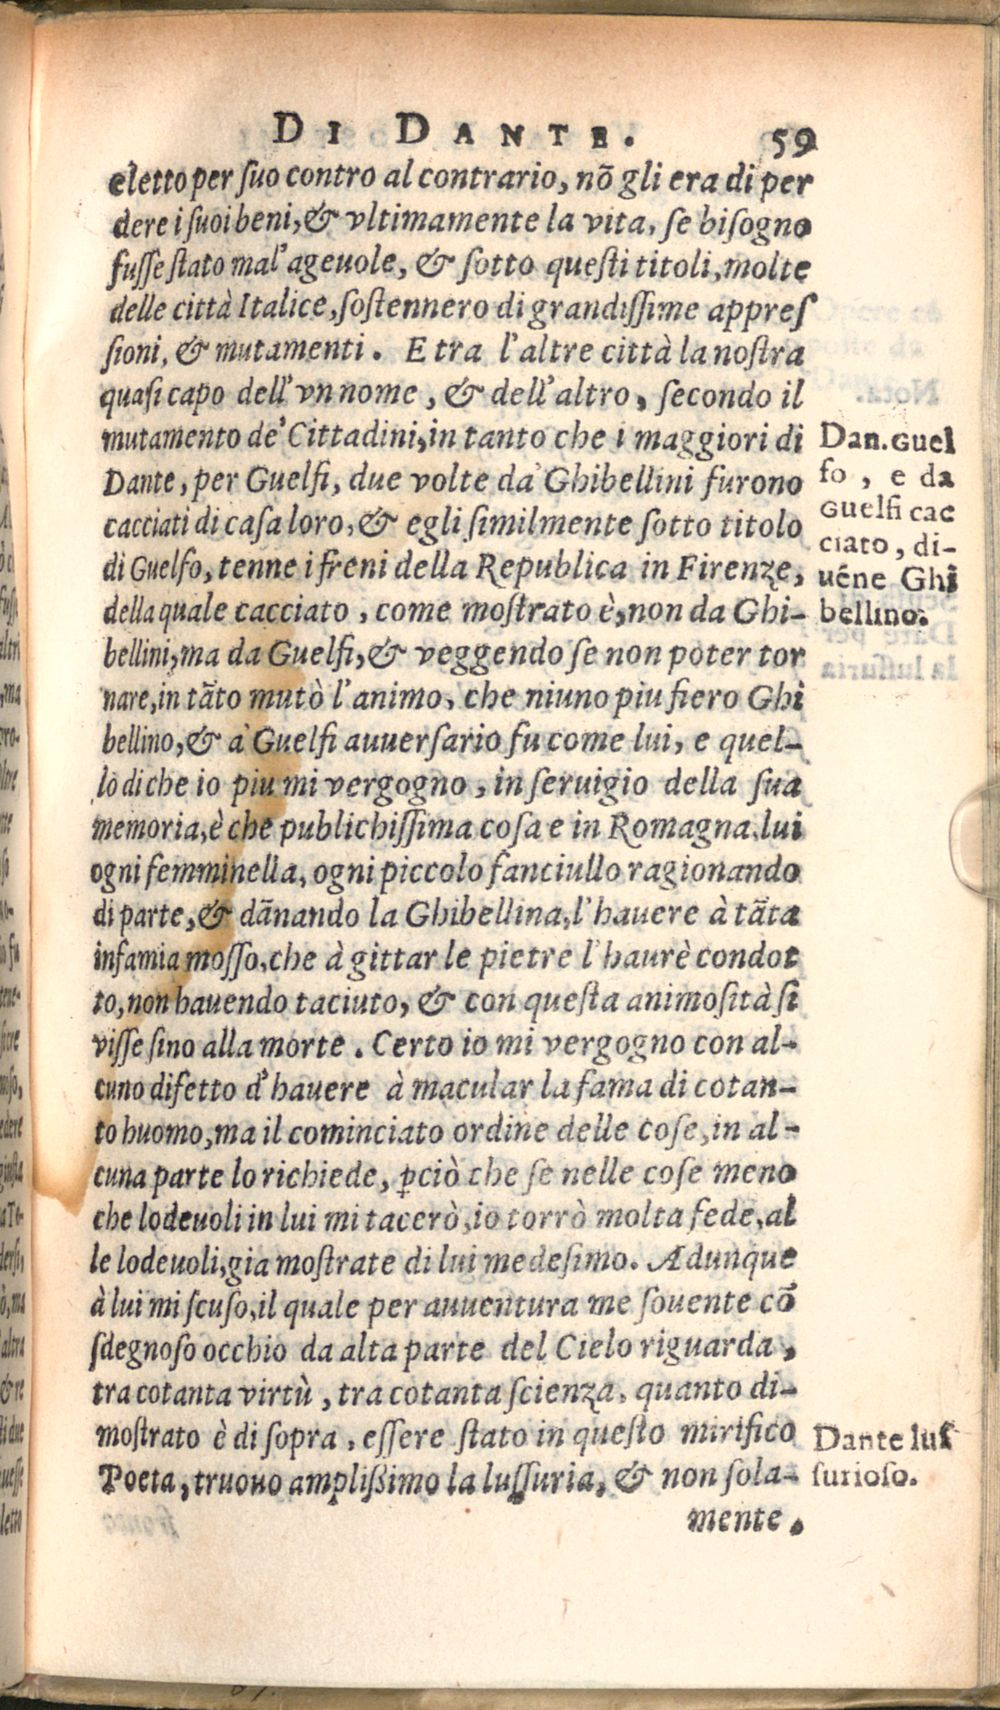 DI DANTE. 59
eletto per ſuo contro al contrario, nõ gli era di per
dere i ſuoi beni, & vltimamente la vita, ſe biſogno
fuſſe ſtato mal'ageuole, & ſotto queſti titoli, molte
delle città Italice, ſoſtennero di grandiſſime appreſ
ſioni, & mutamenti. E tra l'altre città la noſtra
quaſi capo dell'vn nome, & dell'altro, ſecondo il
mutamento de' Cittadini, in tanto che i maggiori di
Dante, per Guelfi, due volte da' Ghibellini furono
cacciati di caſa loro, & egli ſimilmente ſotto titolo
di Guelfo, tenne i freni della Republica in Firenze,
della quale cacciato, come moſtrato è, non da Ghi-
bellini, ma da Guelfi, & veggendo ſe non poter tor
nare, in tãto mutò l'animo, che niuno piu fiero Ghi
bellino, & à Guelfi auuerſario fu come lui, e quel-
lo di che io piu mi vergogno, in ſeruigio della ſua
memoria, è che publichiſſima coſa e in Romagna, lui
ogni femminella, ogni piccolo fanciullo ragionando
di parte, & dãnando la Ghibellina, l'hauere à tãta
infamia moſſo, che à gittar le pietre l'haurè condot
to, non hauendo taciuto, & con queſta animoſità ſi
viſſe ſino alla morte. Certo io mi vergogno con al-
cuno difetto d'hauere à macular la fama di cotan-
to huomo, ma il cominciato ordine delle coſe, in al-
cuna parte lo richiede, ꝑciò che ſe nelle coſe meno
che lodeuoli in lui mi tacerò, io torrò molta fede, al
le lodeuoli, gia moſtrate di lui medeſimo. Adunque
à lui mi ſcuſo, il quale per auuentura me ſouente cõ
ſdegnoſo occhio da alta parte del Cielo riguarda,
tra cotanta virtù, tra cotanta ſcienza, quanto di-
moſtrato è di ſopra, eſſere ſtato in queſto mirifico
Poeta, truouo ampliſſimo la luſſuria, & non ſola-
mente.
Dan. Guel
fo, e da
Guelfi cac
ciato, di-
uéne Ghi
bellino.
Dante luſ
ſurioſo.